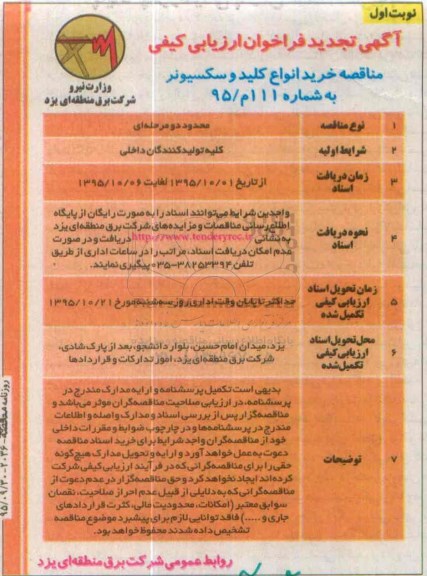 نوبت اول
آگهی تجدید فراخوان ارزیابی کیفی
مناقصه خرید انواع کلید و سکسیونر
به شماره ۱۱۱م/۹۵
وزارت نیرو
شرکت برق منطقه‌ای یزد
۱ نوع مناقصه محدود دو مرحله‌ای
۲ شرایط اولیه کلیه تولیدکنندگان داخلی
۳ زمان دریافت اسناد از تاریخ ۱۳۹۵/۱۰/۰۱ لغایت ۱۳۹۵/۱۰/۰۶
۴ نحوه دریافت اسناد
واجدین شرایط می‌توانند اسناد را به صورت رایگان از پایگاه
اطلاع‌رسانی مناقصات و مزایده‌های شرکت برق منطقه‌ای یزد
به نشانی http://www.tenderyrec.ir دریافت و در صورت
عدم امکان دریافت اسناد، مراتب را در ساعات اداری از طریق
تلفن ۳۸۲۵۳۳۹۴-۰۳۵ پیگیری نمایند.
۵ زمان تحویل اسناد ارزیابی کیفی تکمیل شده
حداکثر تا پایان وقت اداری روز سه‌شنبه مورخ ۱۳۹۵/۱۰/۲۱
۶ محل تحویل اسناد ارزیابی کیفی تکمیل شده
یزد، میدان امام حسین، بلوار دانشجو، بعد از پارک شادی،
شرکت برق منطقه‌ای یزد، امور تدارکات و قراردادها
۷ توضیحات
بدیهی است تکمیل پرسشنامه و ارایه مدارک مندرج در
پرسشنامه، در ارزیابی صلاحیت مناقصه‌گران موثر می‌باشد و
مناقصه‌گزار پس از بررسی اسناد و مدارک واصله و اطلاعات
مندرج در پرسشنامه‌ها و در چارچوب ضوابط و مقررات داخلی
خود از مناقصه‌گران واجد شرایط برای خرید اسناد مناقصه
دعوت به عمل خواهد آورد و ارایه و تحویل مدارک هیچ‌گونه
حقی را برای مناقصه‌گرانی که در فرآیند ارزیابی کیفی شرکت
کرده‌اند ایجاد نخواهد کرد و حق مناقصه‌گزار در عدم دعوت از
مناقصه‌گرانی که به دلایلی از قبیل عدم احراز صلاحیت، نقصان
سوابق معتبر (امکانات، محدودیت مالی، کثرت قراردادهای
جاری و .....) فاقد توانایی لازم برای پیشبرد موضوع مناقصه
تشخیص داده شدند محفوظ خواهد بود.
روابط عمومی شرکت برق منطقه‌ای یزد